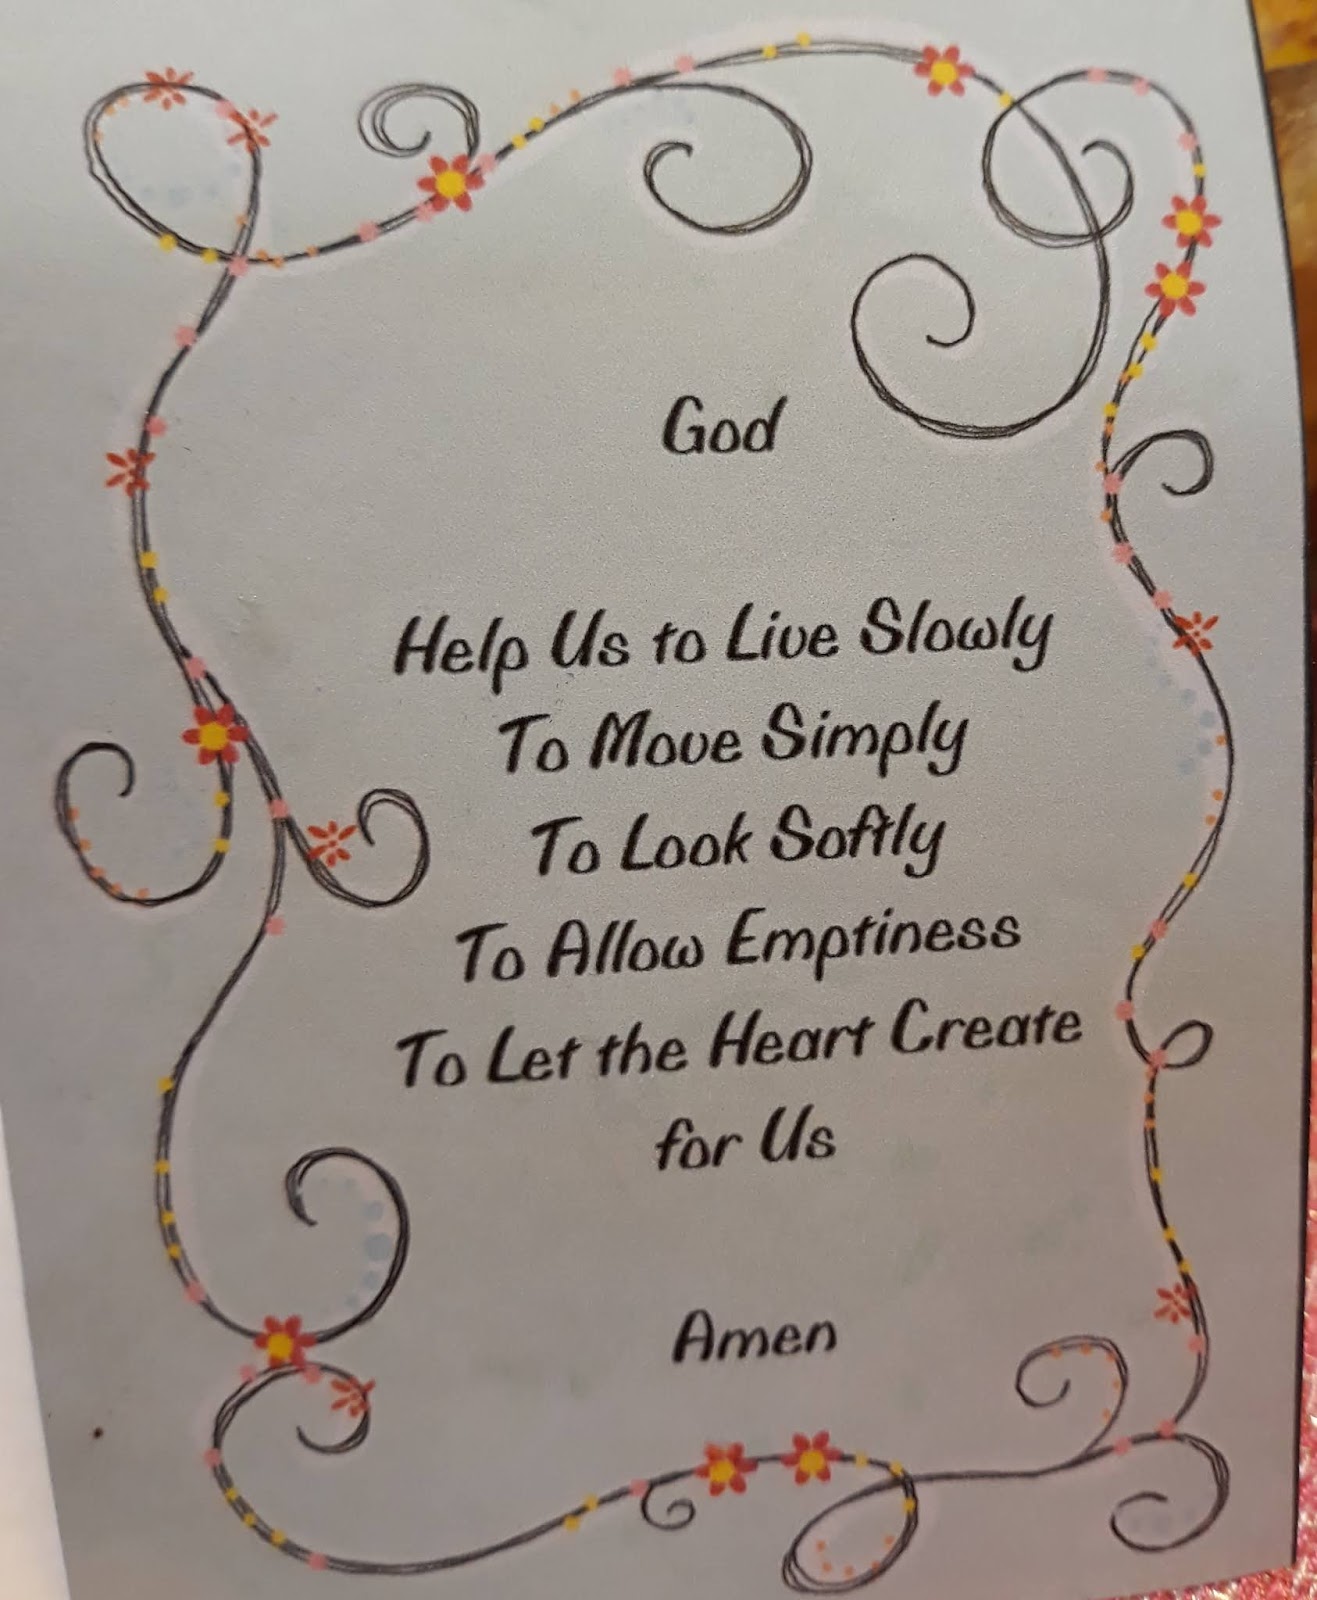 God
Help Us to Live Slowly
To Move Simply
To Look Softly
To Allow Emptiness
To Let the Heart Create
for Us
Amen